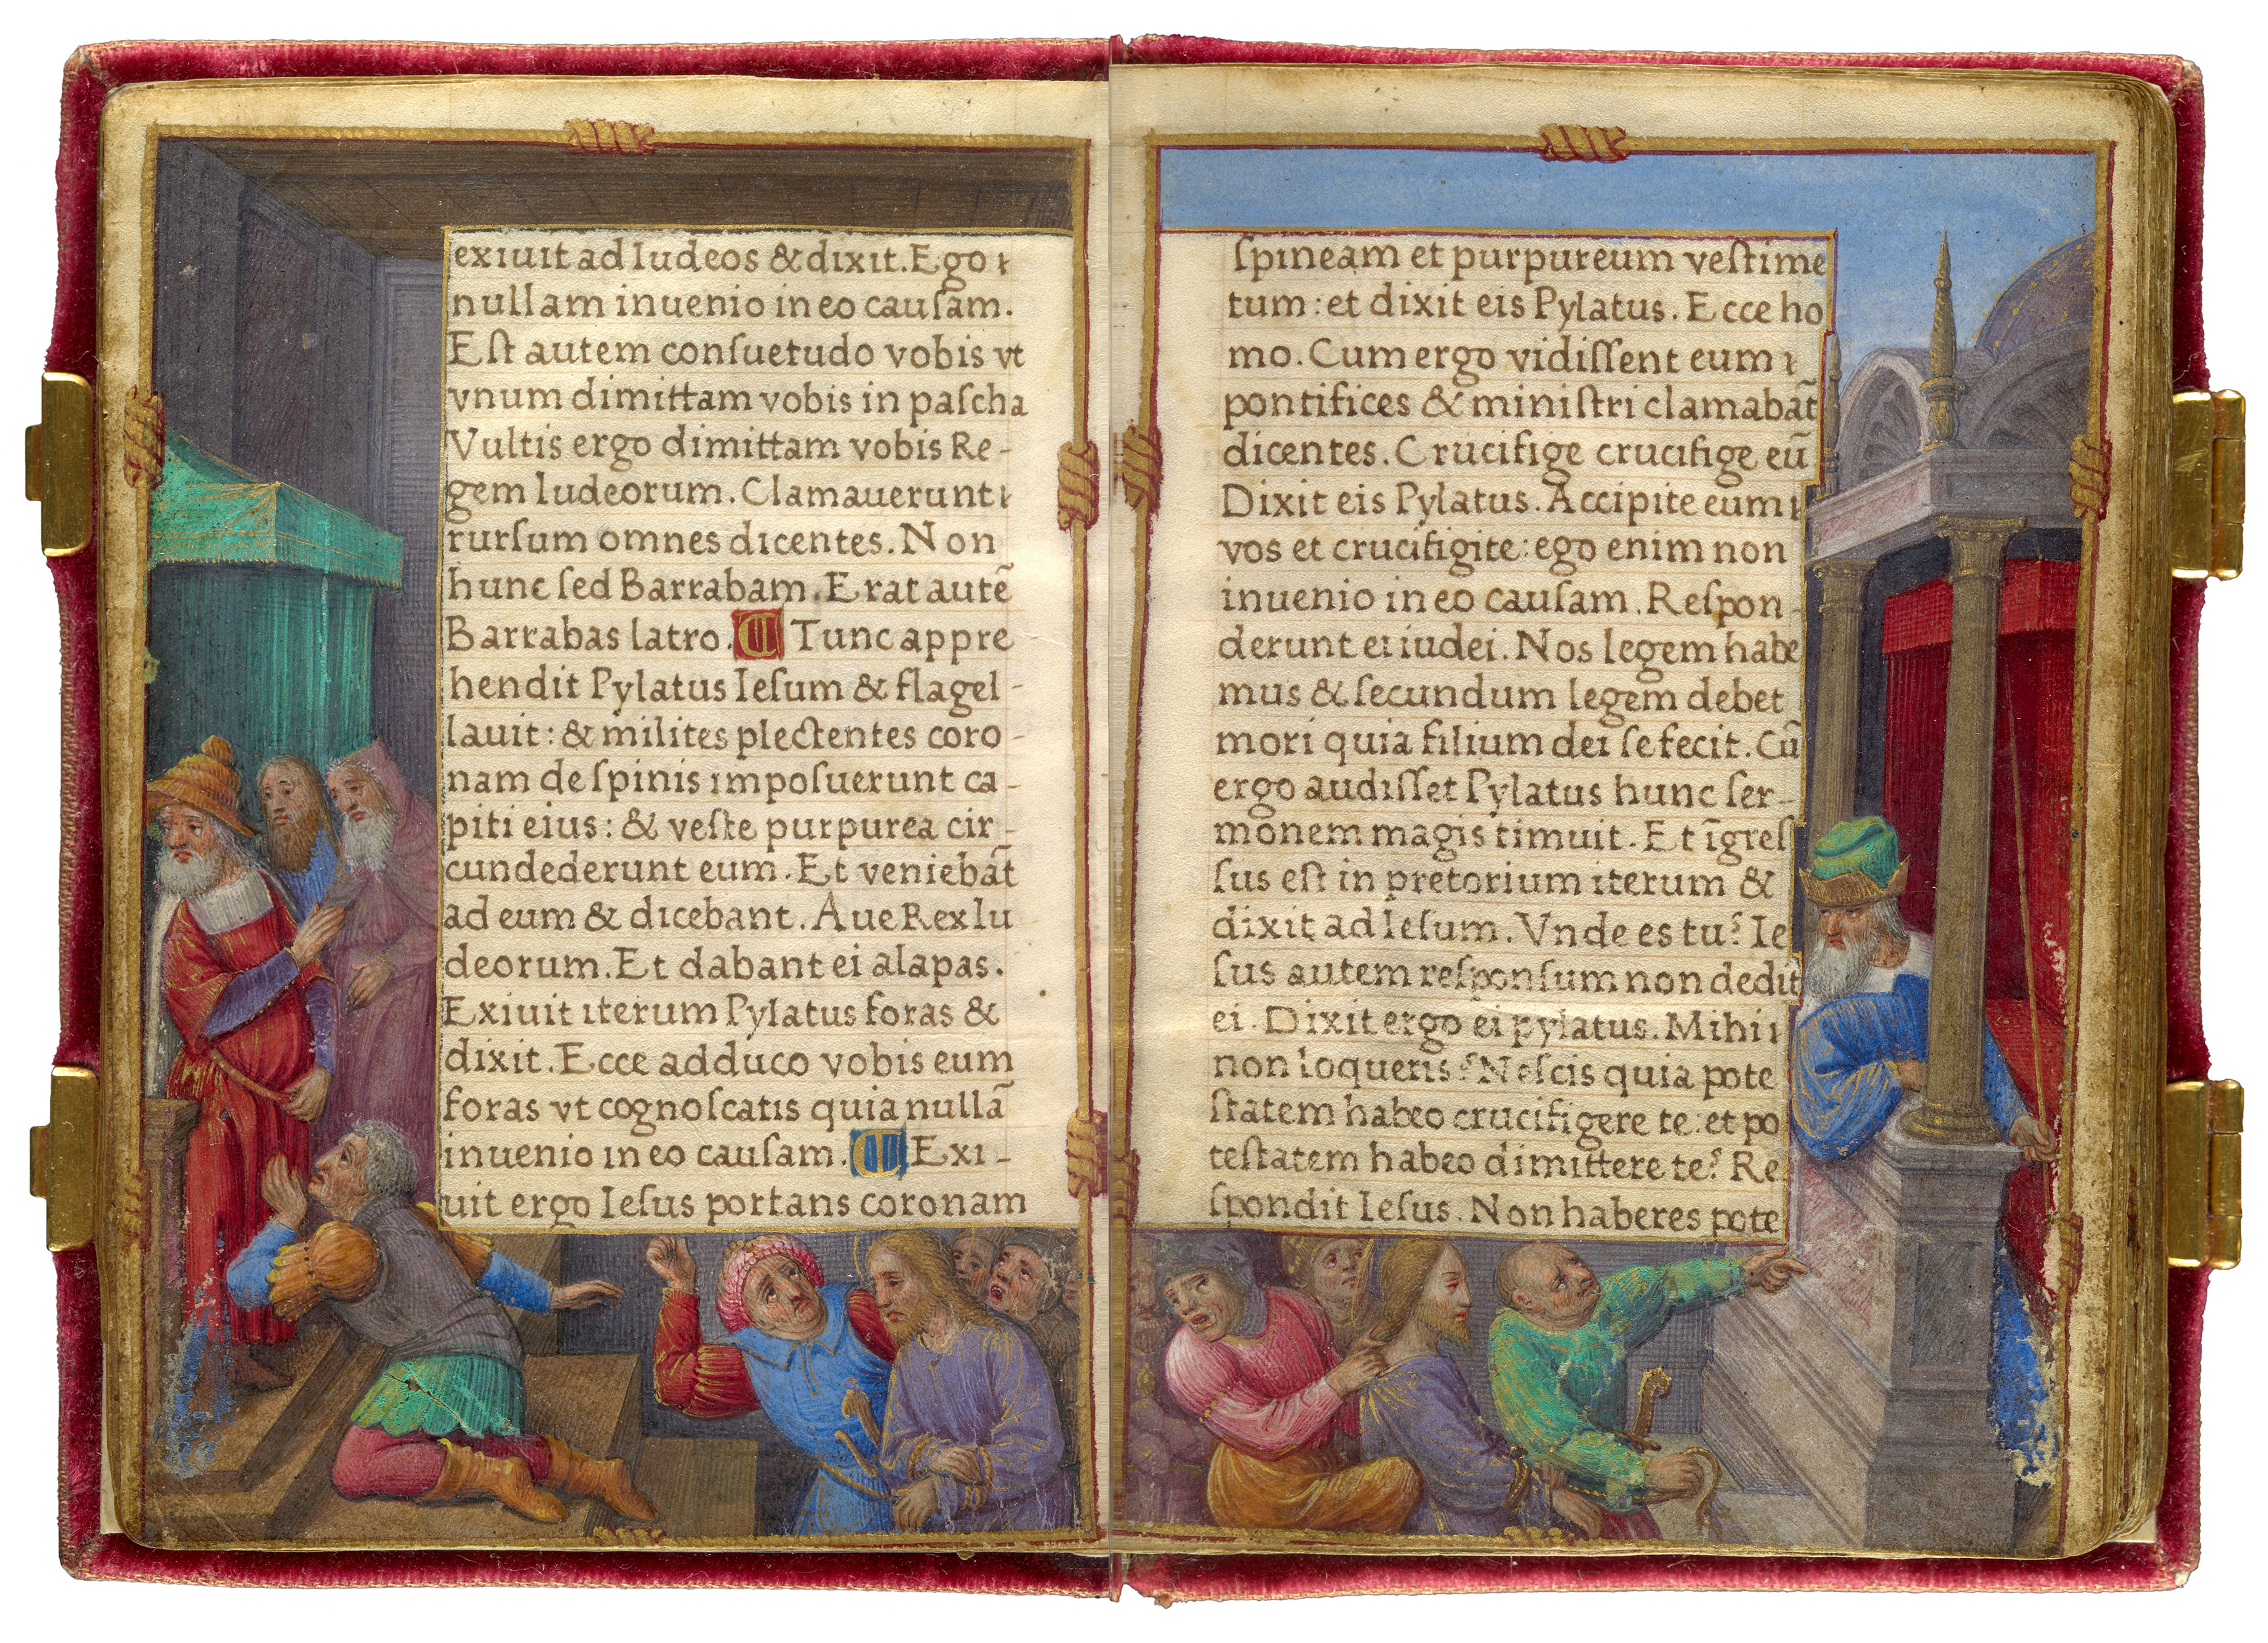 exiuit ad Iudeos & dixit. Ego
nullam inuenio in eo cauſam.
Eſt autem conſuetudo vobis vt
vnum dimittam vobis in paſcha
Vultis ergo dimittam vobis Re-
gem Iudeorum. Clamauerunt
rurſum omnes dicentes. Non
hunc ſed Barrabam. Erat autē
Barrabas latro. Tunc appre
hendit Pylatus Ieſum & flagel-
lauit: & milites plectentes coro-
nam de ſpinis impoſuerunt ca-
piti eius: & veſte purpurea cir-
cundederunt eum. Et veniebāt
ad eum & dicebant. Aue Rex Iu
deorum. Et dabant ei alapas.
Exiuit iterum Pylatus foras &
dixit. Ecce adduco vobis eum
foras vt cognoſcatis quia nullā
inuenio in eo cauſam. Exi-
uit ergo Ieſus portans coronam
ſpineam et purpureum veſtime
tum: et dixit eis Pylatus. Ecce ho
mo. Cum ergo vidiſſent eum
pontifices & miniſtri clamabāt
dicentes. Crucifige crucifige eū
Dixit eis Pylatus. Accipite eum
vos et crucifigite: ego enim non
inuenio in eo cauſam. Reſpon-
derunt ei iudei. Nos legem habe
mus & ſecundum legem debet
mori quia filium dei ſe fecit. Cū
ergo audiſſet Pylatus hunc ſer-
monem magis timuit. Et īgreſ
ſus eſt in pretorium iterum &
dixit ad Ieſum. Vnde es tu? Ie
ſus autem reſponſum non dedit
ei. Dixit ergo ei pylatus. Mihi
non loqueris? Neſcis quia pote
ſtatem habeo crucifigere te: et po
teſtatem habeo dimittere te? Re
ſpondit Ieſus. Non haberes pote